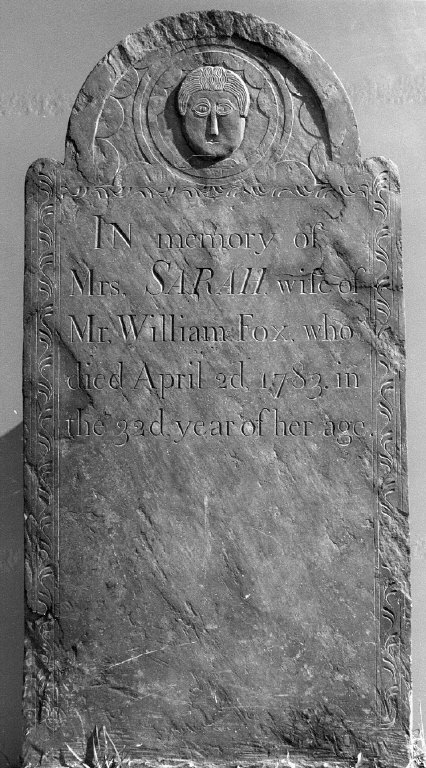 IN memory of
Mrs. SARAH, wife of
Mr. William Fox, who
died April 2d, 1783, in
the 32d, year of her age.